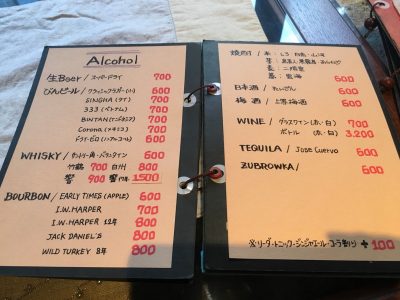 Alcohol
生Beer / スーパードライ 700
びんビール / クラシックラガー(小) 600
SINGHA (タイ) 700
333 (ベトナム) 700
BINTAN (インドネシア) 700
Corona (メキシコ) 700
ドライゼロ (ノンアルコール) 600
WHISKY / サントリー角・バランタイン 600
竹鶴 700 白州 800
響 900 響17年 1500
BOURBON / EARLY TIMES (APPLE) 600
I.W.HARPER 700
I.W.HARPER 12年 800
JACK DANIEL'S 800
WILD TURKEY 8年 800
焼酎 / 米
芋
麦 : 二階堂
600
日本酒 / 600
梅酒 / 上等梅酒 600
WINE / グラスワイン (赤・白) 700
ボトル (赤・白) 3,200
TEQUILA / Jose Cuervo 600
ZUBROWKA / 600
ソーダ・トニック・ジンジャエール・コーラ割り +100